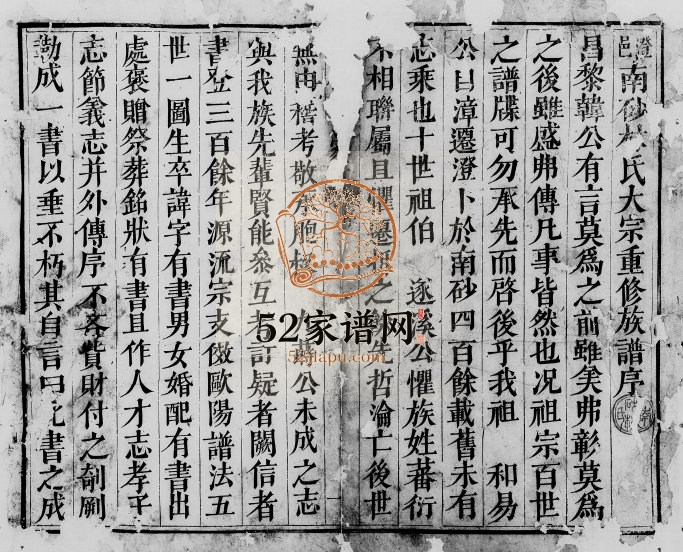 澄邑南砂氏大宗重修族譜序
昌黎韓公有言莫為之前雖美弗彰莫為
之後雖盛弗傳凡事皆然也况祖宗百世
之譜牒可勿承先而啓後乎我祖 和易
公自漳遷澄卜於南砂四百餘載舊未有
志乘也十世祖伯 遂溪公懼族姓蕃衍
不相聯屬且懼之先哲淪亡後世
無由稽考敬承公未成之志
與我族先輩賢能參互考訂疑者闕信者
書登三百餘年源流宗支倣歐陽譜法五
世一圖生卒諱字有書男女婚配有書出
處褒贈祭葬銘狀有書且作人才志孝子
志節義志并外傳序不吝費財付之剞劂
勒成一書以垂不朽其自言曰此書之成
52家谱网
52jiapu.com